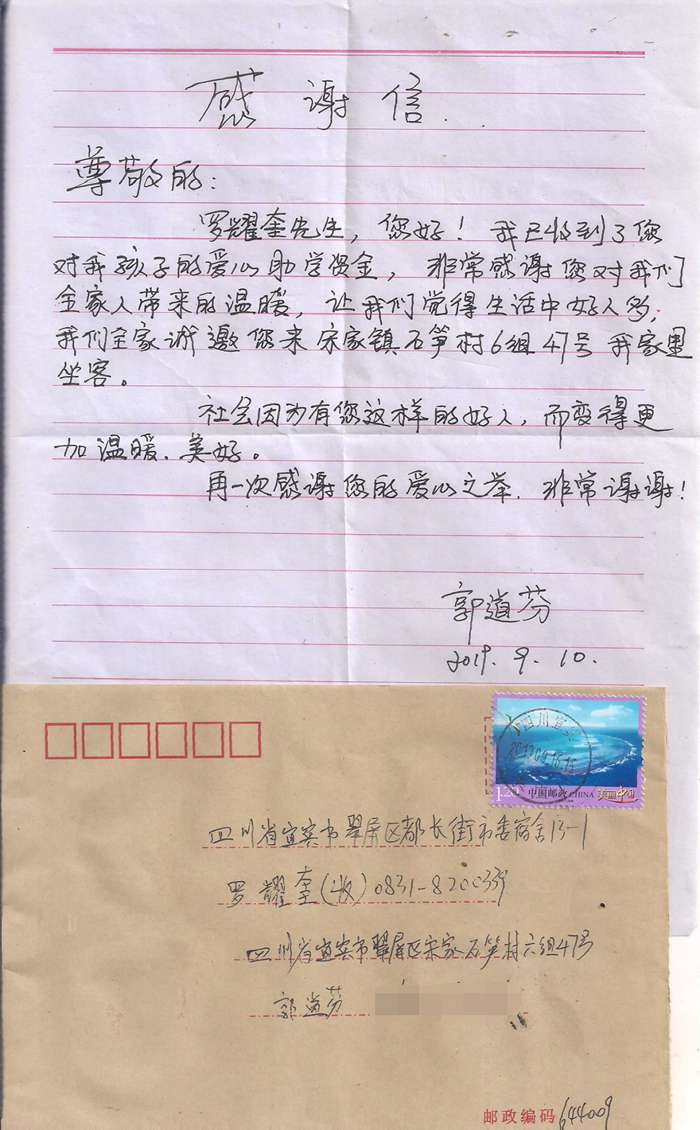 感谢信
尊敬的：
罗耀奎先生，您好！我已收到了您
对我孩子的爱心助学资金，非常感谢您对我们
全家人带来的温暖，让我们觉得生活中好人多，
我们全家诚邀您来宋家镇石笋村6组47号我家里
坐客。
社会因为有您这样的好人，而变得更
加温暖、美好。
再一次感谢您的爱心之举.非常谢谢！
郭道芬
2017.9.10.
1.20元 中国邮政 CHINA 美丽中国
四川省宜宾市翠屏区都长街市委宿舍13-1
罗耀奎(收)0831-8200339
四川省宜宾市翠屏区宋家石笋村六组47号
郭道芬
邮政编码 644009